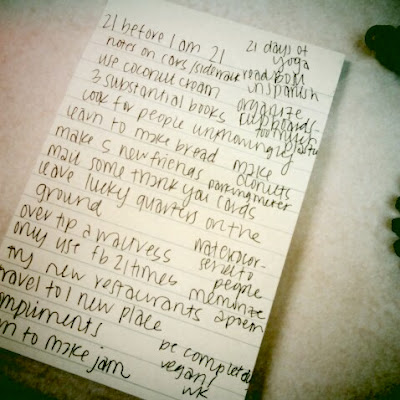 21 before I am 21
notes on cars/sidewalk
use coconut cream
3 substantial books
cook for people unknowingly
learn to make bread
make 5 new friends
mail some thank you cards
leave lucky quarters on the
ground
over tip a waitress
only use fb 21 times
try new restaurants
travel to 1 new place
compliments
to make jam
21 days of
yoga
read book
in spanish
organize
cupboards-
make
donuts
parking meter
watercolor-
send to
people
memorize
a poem
be completely
vegan 1
wk